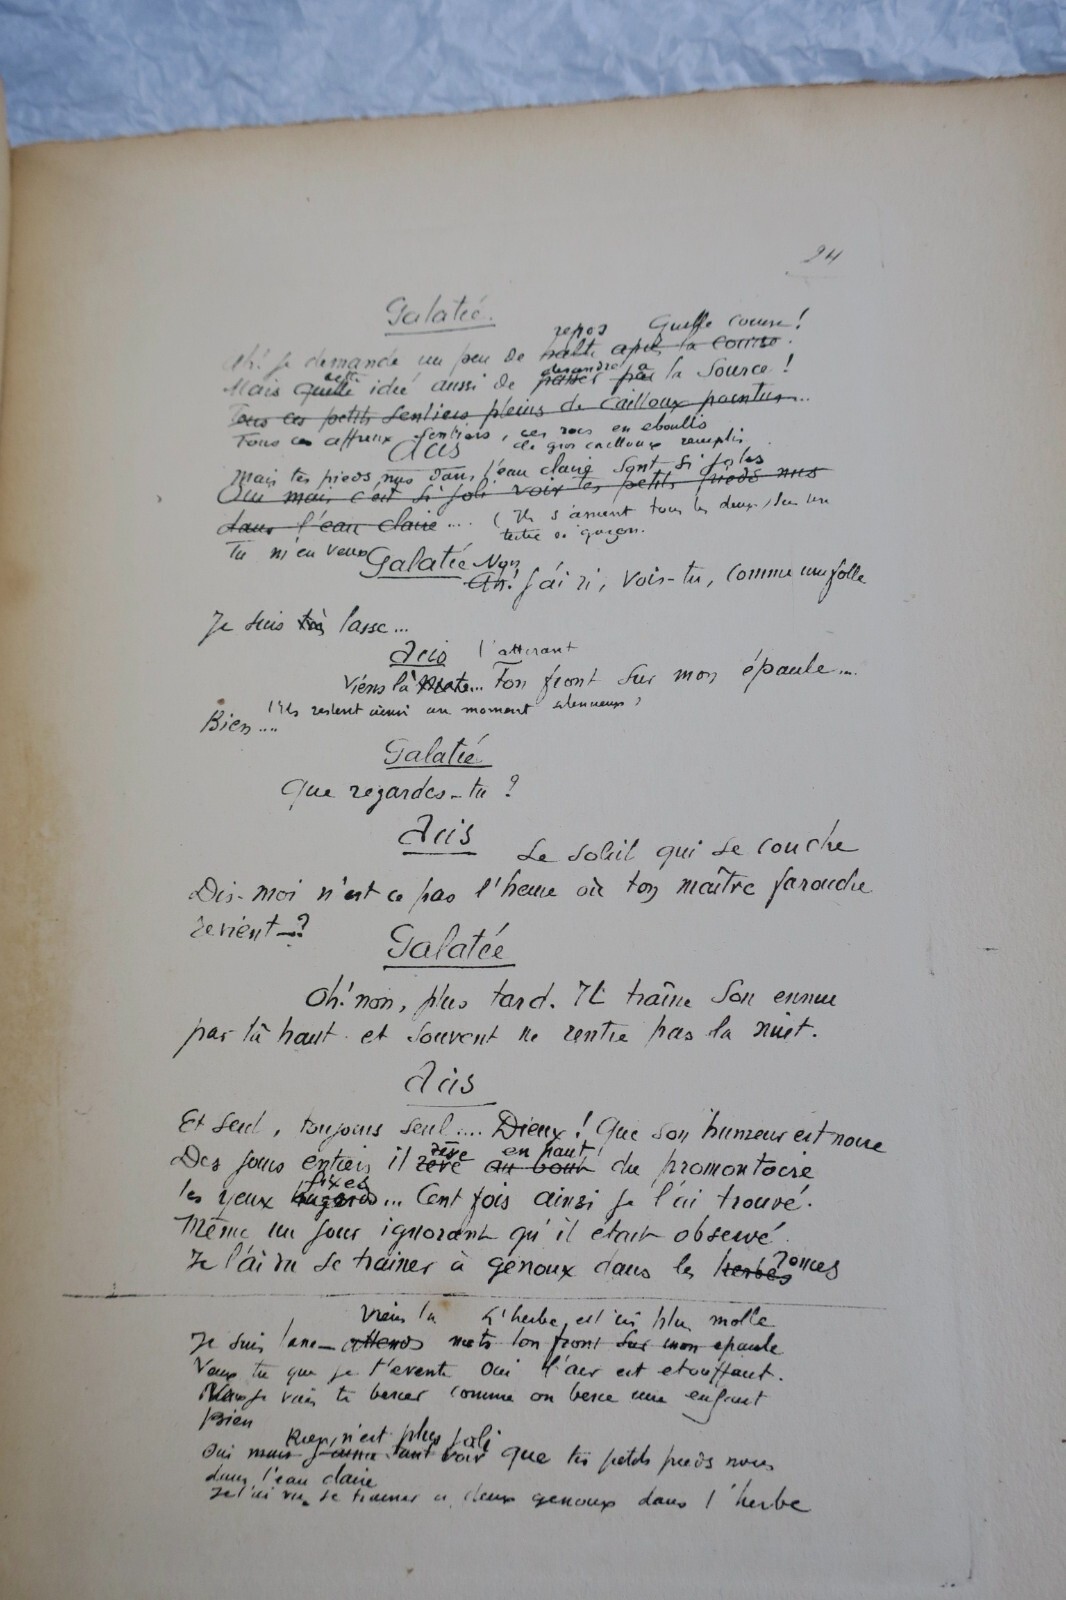 24
Galatée.
repos Quelle course!
Ah! je demande un peu de halte après la course.
cette descendre à
Mais quelle idée aussi de passer par la Source!
Tous ces petits sentiers pleins de cailloux pointus...
Tous ces affreux sentiers, ces rocs en éboulis
Acis de gros cailloux remplis
Mais tes pieds nus dans l'eau claire sont si jolis
Oui mais c'est si joli voir tes petits pieds nus
dans l'eau claire.... (Ils s'asseient tous les deux sur un
tertre de gazon.
Tu m'en veux
Galatée Non
Ah! J'ai ri, vois-tu, comme une folle
Je suis très lasse...
Acis l'attirant
Viens là Ton front sur mon épaule...
(Ils restent ainsi un moment silencieux)
Bien....
Galatée
Que regardes-tu?
Acis
Le soleil qui se couche
Dis-moi n'est ce pas l'heure où ton maître farouche
revient—?
Galatée
Oh! non, plus tard. Il traîne son ennui
par là haut et souvent ne rentre pas la nuit.
Acis
Et seul, toujours seul.... Dieux! Que son humeur est noire
rêve en haut
Des jours entiers il rêve au bout du promontoire
fixes
les yeux hagards... Cent fois ainsi je l'ai trouvé.
Même un jour ignorant qu'il était observé
Je l'ai vu se trainer à genoux dans les herbes ronces
Viens là L'herbe est ici plus molle
Je suis lasse— attends mets ton front sur mon épaule
Veux tu que je t'évente Oui l'air est étouffant.
je vais te bercer comme on berce une enfant
Bien
Rien n'est plus joli
Oui mais j'aime tant voir que tes petits pieds nus
dans l'eau claire
Je l'ai vu se trainer à deux genoux dans l'herbe